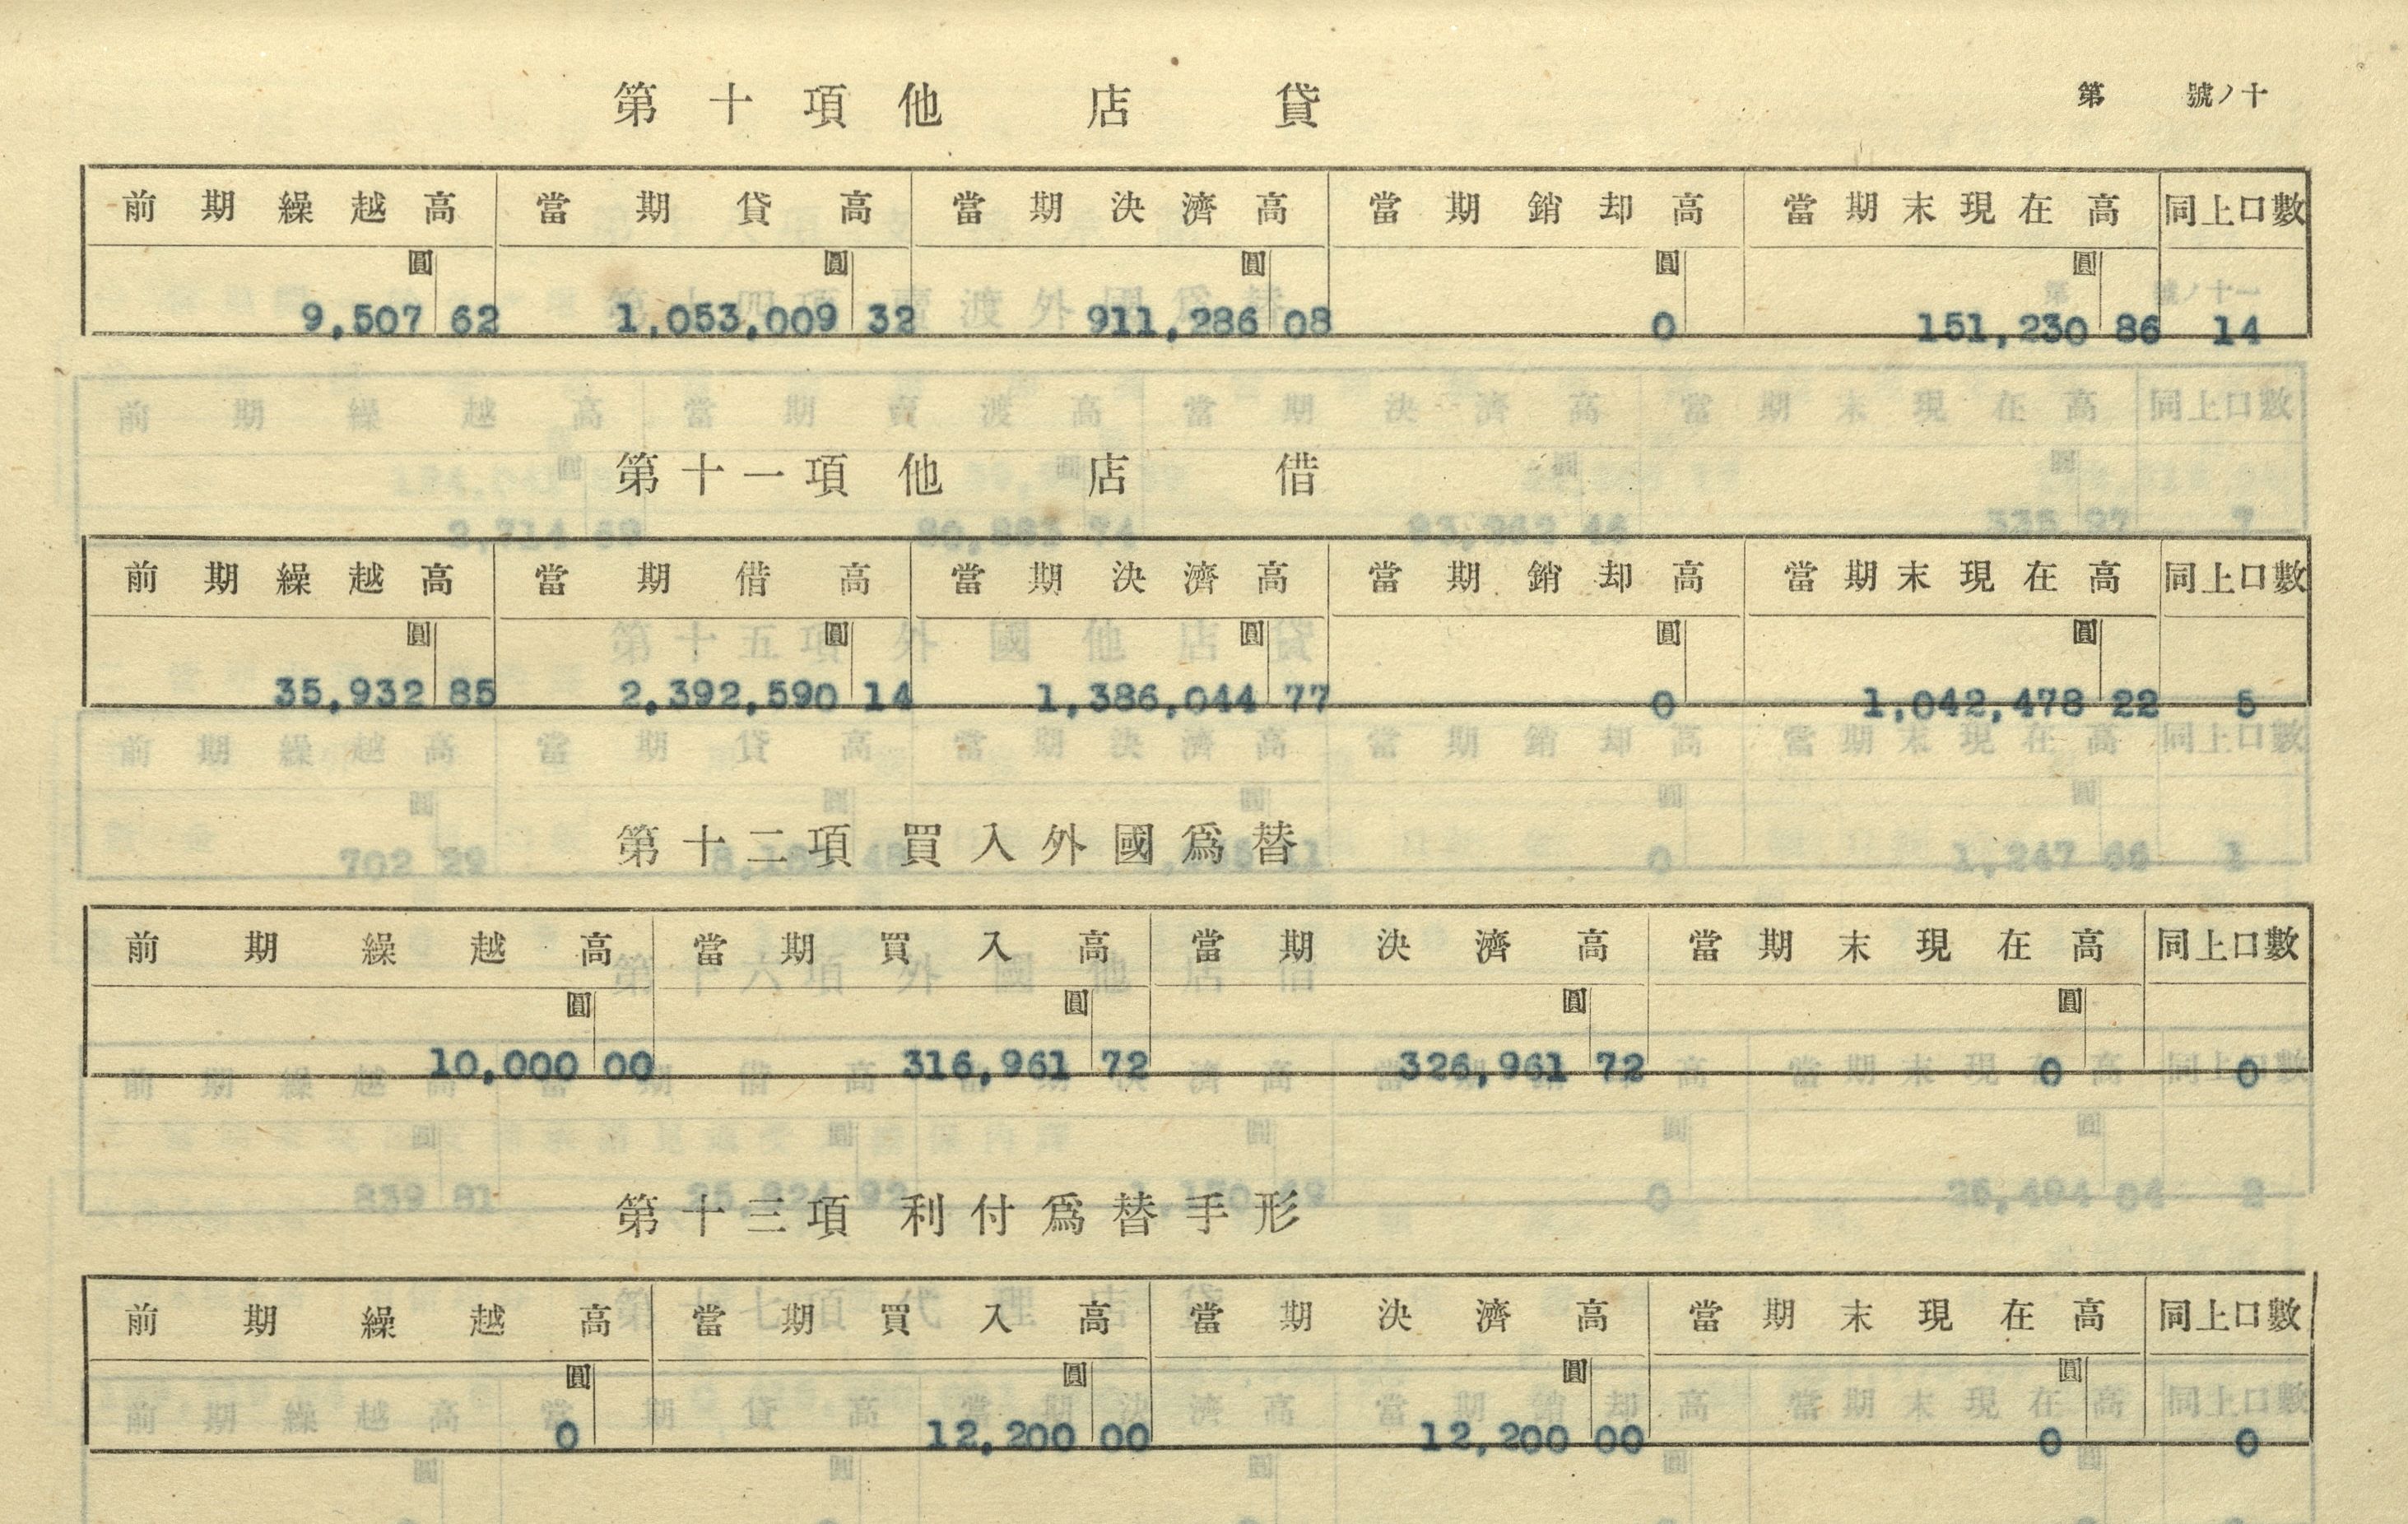 第十項他店貸
第 號ノ十
前期繰越高 當期貸高 當期決濟高 當期銷却高 當期末現在高 同上口數
圓 圓 圓 圓 圓
9,507 62 1,053,009 32 911,286 08 0 151,230 86 14
第十一項他店借
前期繰越高 當期借高 當期決濟高 當期銷却高 當期末現在高 同上口數
圓 圓 圓 圓 圓
35,932 85 2,392,590 14 1,386,044 77 0 1,042,478 22 5
第十二項 買入外國爲替
前期繰越高 當期買入高 當期決濟高 當期末現在高 同上口數
圓 圓 圓 圓
10,000 00 316,961 72 326,961 72 0 0
第十三項 利付爲替手形
前期繰越高 當期買入高 當期決濟高 當期末現在高 同上口數
圓 圓 圓 圓
0 12,200 00 12,200 00 0 0